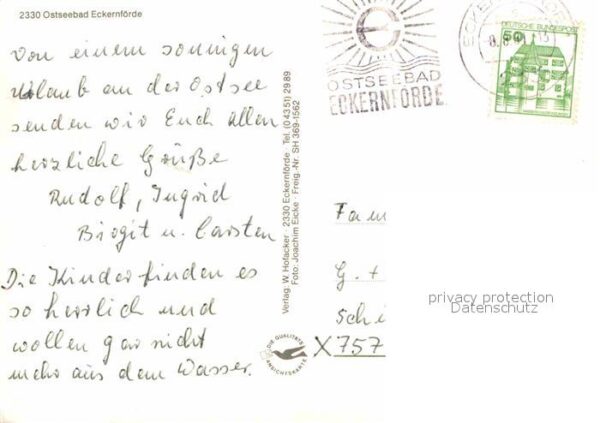 2330 Ostseebad Eckernförde
Von einem sonnigen
Urlaub an der Ostsee
senden wir Euch allen
herzliche Grüße
Rudolf, Ingrid
Birgit u. Carsten
Die Kinder finden es
so herrlich und
wollen gar nicht
mehr aus dem Wasser.
Verlag: W. Hofacker · 2330 Eckernförde · Tel. (0 43 51) 29 89
Foto: Joachim Eicke · Freig.-Nr. SH 369-1562
DIE QUALITÄTS
ANSICHTSKARTE
OSTSEEBAD
ECKERNFÖRDE
DEUTSCHE BUNDESPOST
50
Fam
G. +
Sch
privacy protection
Datenschutz
X757